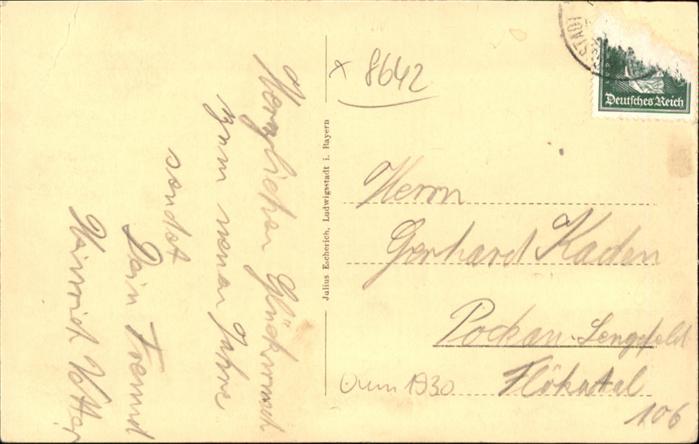 Herzlichen Glückwunsch
zum neuen Jahre
sendet
Dein Freund
Heinrich
Julius Escherich, Ludwigsstadt i. Bayern
x 8642
STADT
Deutsches Reich
Herrn
Gerhard Kaden
Pockau-Lengefeld
Flöhatal
1930
106